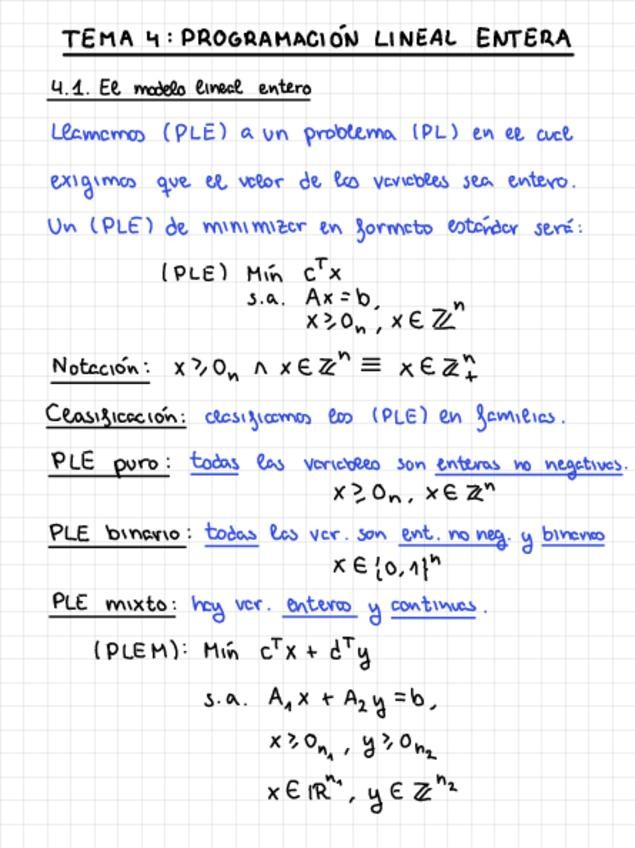 TEMA 4: PROGRAMACIÓN LINEAL ENTERA
4.1. El modelo lineal entero
Llamamos (PLE) a un problema (PL) en el cual
exigimos que el valor de las variables sea entero.
Un (PLE) de minimizar en formato estándar será:
(PLE) Mín cᵀx
s.a. Ax = b,
x ≥ 0ₙ, x ∈ ℤⁿ
Notación: x ≥ 0ₙ ∧ x ∈ ℤⁿ ≡ x ∈ ℤ₊ⁿ
Clasificación: clasificamos los (PLE) en familias.
PLE puro: todas las variables son enteras no negativas.
x ≥ 0ₙ, x ∈ ℤⁿ
PLE binario: todas las var. son ent. no neg. y binarias
x ∈ {0,1}ⁿ
PLE mixto: hay var. enteras y continuas.
(PLEM): Mín cᵀx + dᵀy
s.a. A₁x + A₂y = b,
x ≥ 0ₙ₁, y ≥ 0ₙ₂
x ∈ ℝⁿ¹, y ∈ ℤⁿ²